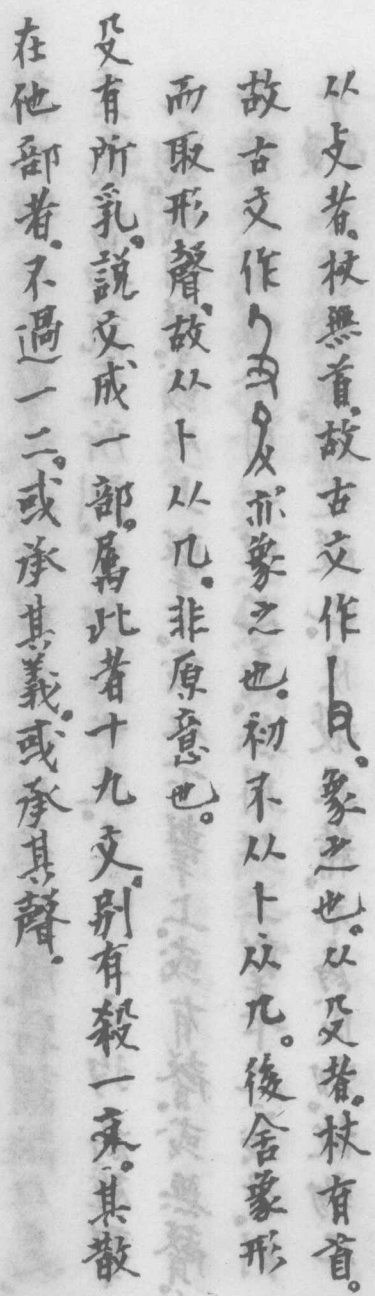 从攴者。杖無首。故古文作。象之也。从殳者。杖有首。
故古文作亦象之也。初不从卜从几。後舍象形
而取形聲。故从卜从几。非原意也。
殳有所乳。說文成一部。屬此者十九文。別有殺一束。其散
在他部者。不過一二。或承其義。或承其聲。